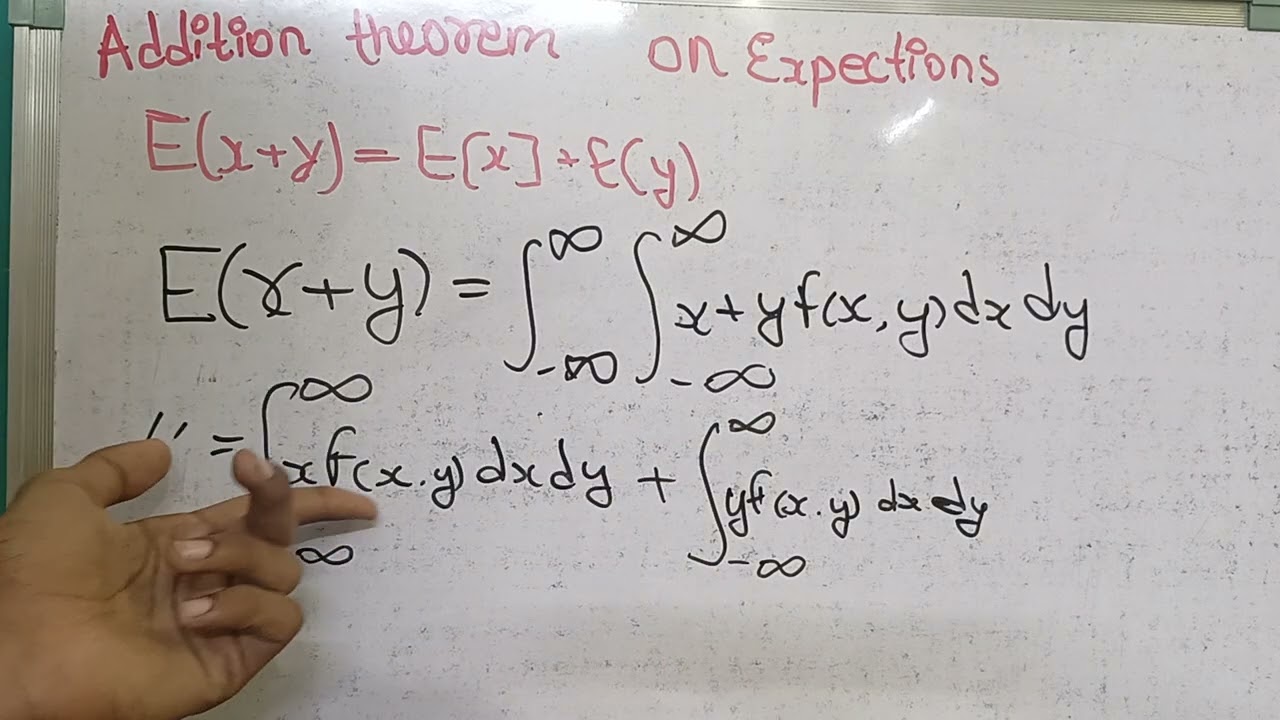 Addition theorem on Expections
E(x+y) = E[x] + E(y)
E(x+y) = ∫_{-∞}^{∞} ∫_{-∞}^{∞} x+y f(x,y) dx dy
〃 = ∫_{-∞}^{∞} x f(x.y) dx dy + ∫_{-∞}^{∞} y f(x.y) dx dy